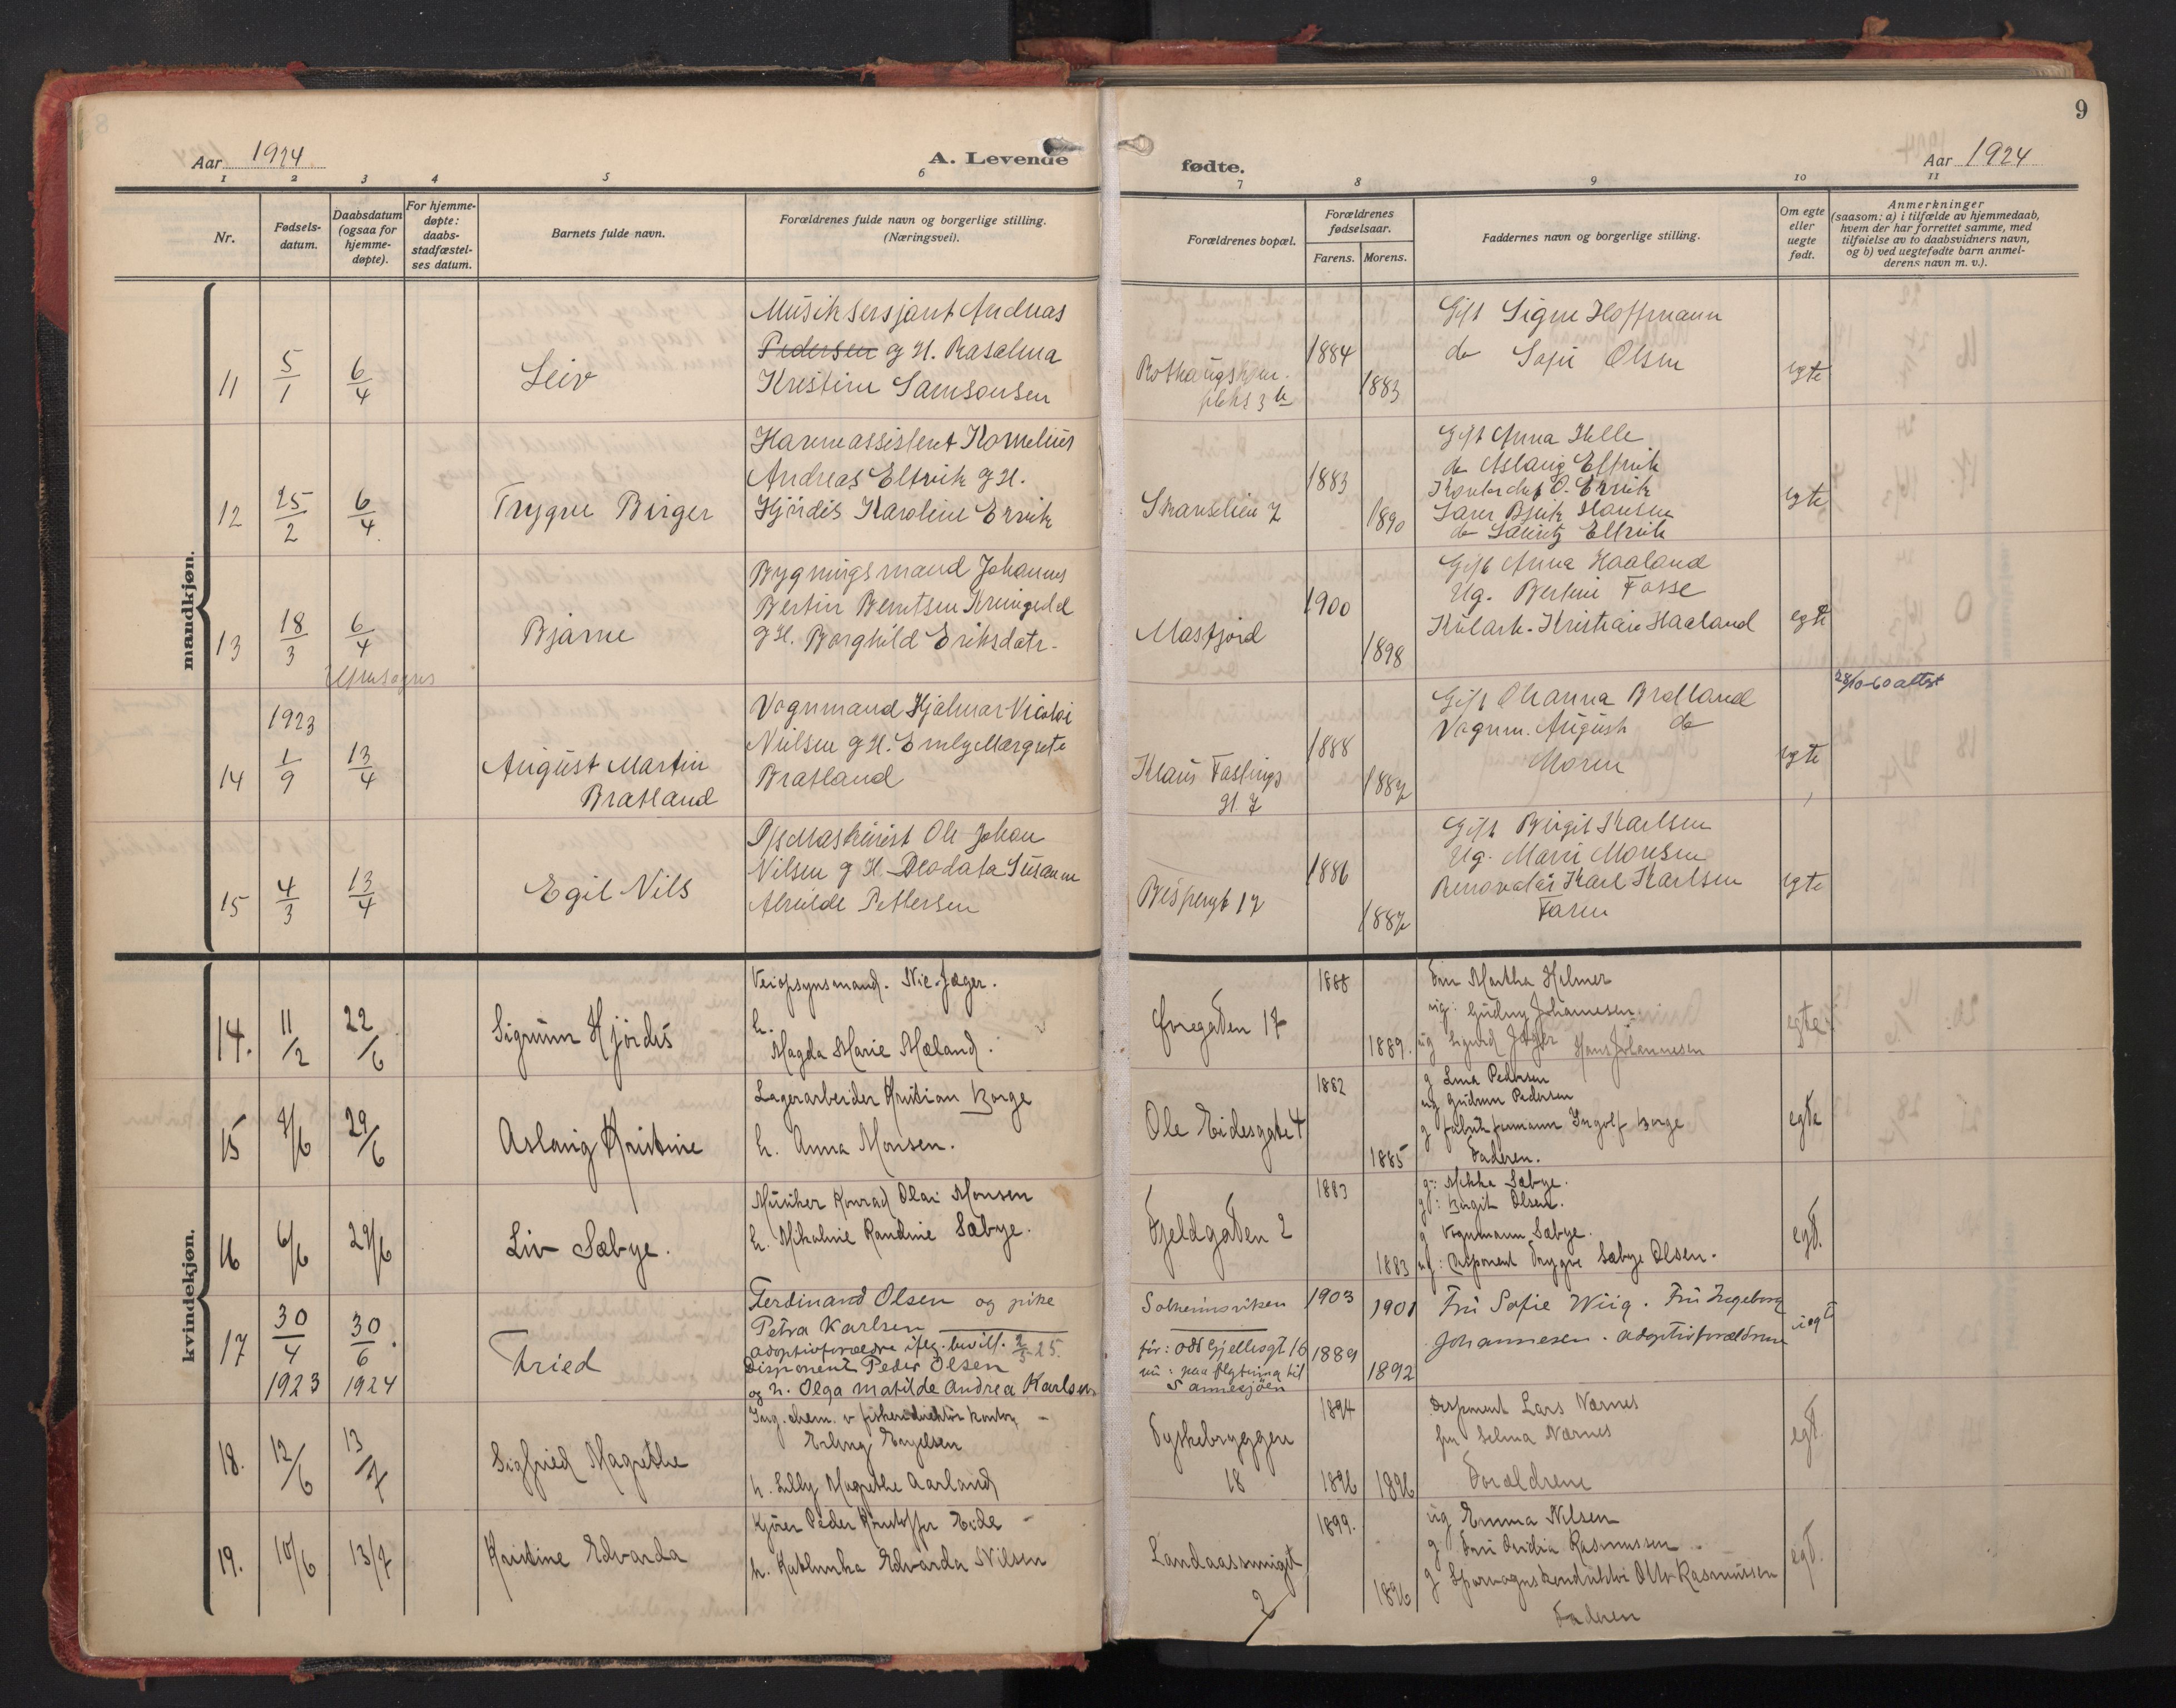 8
9
Aar 1924
A. Levende
fødte.
Aar 1924
1 2 3 4 5 6 7 8 9 10 11
Nr.
Fødsels-
datum.
Daabsdatum
(ogsaa for
hjemme-
døpte).
For hjemme-
døpte:
daabs-
stadfæstel-
ses datum.
Barnets fulde navn.
Forældrenes fulde navn og borgerlige stilling.
(Næringsvei).
Forældrenes bopæl.
Forældrenes
fødselsaar.
Farens. Morens.
Faddernes navn og borgerlige stilling.
Om egte
eller
uegte
født.
Anmerkninger
(saasom: a) i tilfælde av hjemmedaab,
hvem der har forrettet samme, med
tilføielse av to daabsvidners navn,
og b) ved uegtefødte barn anmel-
derens navn m. v.).
mandkjøn.
11
5/1
6/4
Leiv
Musiksersjant Andreas
Pedersen og H. Rasalina
Kristine Samsonsen
1884
1883
Gift Signe Hoffmann
do Sofie Olsen
egte
12
25/2
6/4
Trygve Birger
Havneassistent Kornelius
Andreas Eltvik og H.
Hjørdis Karoline Ervik
Skanselien 7
1883
1890
Gift Anna Helle
do Aslaug Eltvik
O. Ervik
Hansen
do Lauritz Eltvik
egte
13
18/3
6/4
Bjarne
Bygningsmand Johannes
Bertin Berntsen
og H. Borghild Eriksdatr.
Masfjord
1900
1898
Gift Anna Haaland
Ug. Bertine Fosse
Kristian Haaland
egte
28/10-60 attest
1923
14
1/9
13/4
August Martin
Bratland
Vognmand Hjalmar Nicolai
Nielsen og H. Emly Margrete
Bratland
Klaus Fastings
gt 7
1888
1887
Gift Ohanna Bratland
Vognm. August do
Moren
egte
15
4/3
13/4
Egil Nils
Maskinist Ole Johan
Nilsen og H. Deodata Susanne
Alvilde Pettersen
Bispengt 17
1886
1887
Gift Birgit Karlsen
Ug. Marie Monsen
Renovatør Karl Karlsen
Faren
egte
kvindekjøn.
14.
11/2
22/6
Sigrunn Hjørdis
Veiopsynsmand. Nic. Jæger.
h.
Magda Marie Mæland.
Øvregaten 17
1888
1889.
Fru Martha Helmer
ug: Gudny Johannesen.
ug Sigurd Jæger Hans Johannesen
egte
15
7/6
29/6
Aslaug Kristine
Lagerarbeider Kristian Borge
h. Anna Monsen.
Ole Eidesgate 4
1882
1885
g Lina Pedersen
ug Gudrun Pedersen
g Fabrikformann Ingolf Borge
Faderen.
egte
16
6/6
29/6
Liv Sæbye.
Musiker Konrad Olai Monsen
h. Mikaline Randine Sæbye.
Fjeldgaten 2
1883
1883
g: Mikka Sæbye.
g: Birgit Olsen.
g Vognmann Sæbye.
ug: Disponent Trygve Sæbye Olsen.
egt.
17
30/4
1923
30/6
1924
Fried
Ferdinand Olsen og pike
Petra Karlsen
adoptivforældre iflg. bevill. 2/5 25.
Disponent Peder Olsen
og h. Olga Matilde Andrea Karlsen
Solheimsviken
før: Odd Gjellesgt 16
nu: paa flytning til
Sannesjøen
1903
1901
1889
1892
Fru Sofie Wiig. Fru Ingeborg
Johannesen. adoptivforældrene
uegt
18.
12/6
13/7
Sigfried Magrethe
Ing. chem. v fiskeridirektør kontor
Erling Engelsen
h. Lilly Magrethe Aarland
Tyskebryggen
18
1894
1896
1896
Disponent Lars Nærnes
fru Selma Nærnes
Forældrene
egt.
19.
10/6
13/7
Kristine Edvarda
Kjører Peder Kristoffer Eide
h. Kathinka Edvarda Nilsen
Landaassmuget
2
1899.
1896
ug Emma Nilsen
g Fru Rasmussen
g Sporvognskonduktør Rasmussen
Faderen
egt.